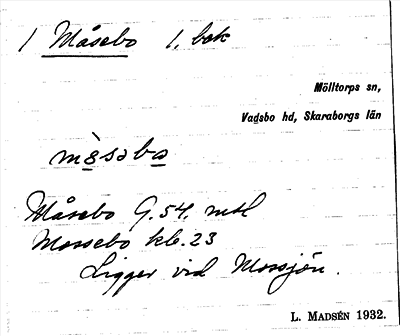 1 Måsebo 1. bok
Mölltorps sn,
Vadsbo hd, Skaraborgs län
Måsebo G.54. mtl
Mossebo kb. 23
Ligger vid Mossjön.
L. MADSÉN 1932.